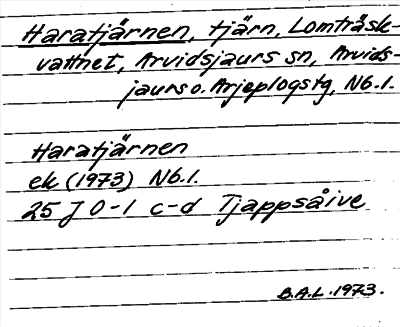 Haratjärnen, tjärn, Lomträsk-
vattnet, Arvidsjaurs sn, Arvids-
jaurs o. Arjeplogs tg, Nb.l.
Haratjärnen
ek (1973) Nb.l.
25 J 0-1 c-d Tjappsåive
B.A.L. 1973.